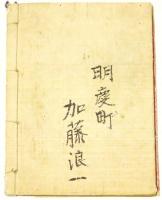 明慶町
加藤浪一